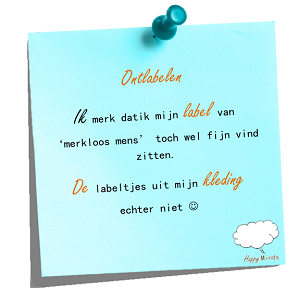 Ontlabelen
Ik merk datik mijn label van
‘merkloos mens’ toch wel fijn vind
zitten.
De labeltjes uit mijn kleding
echter niet ☺
Happy Minds